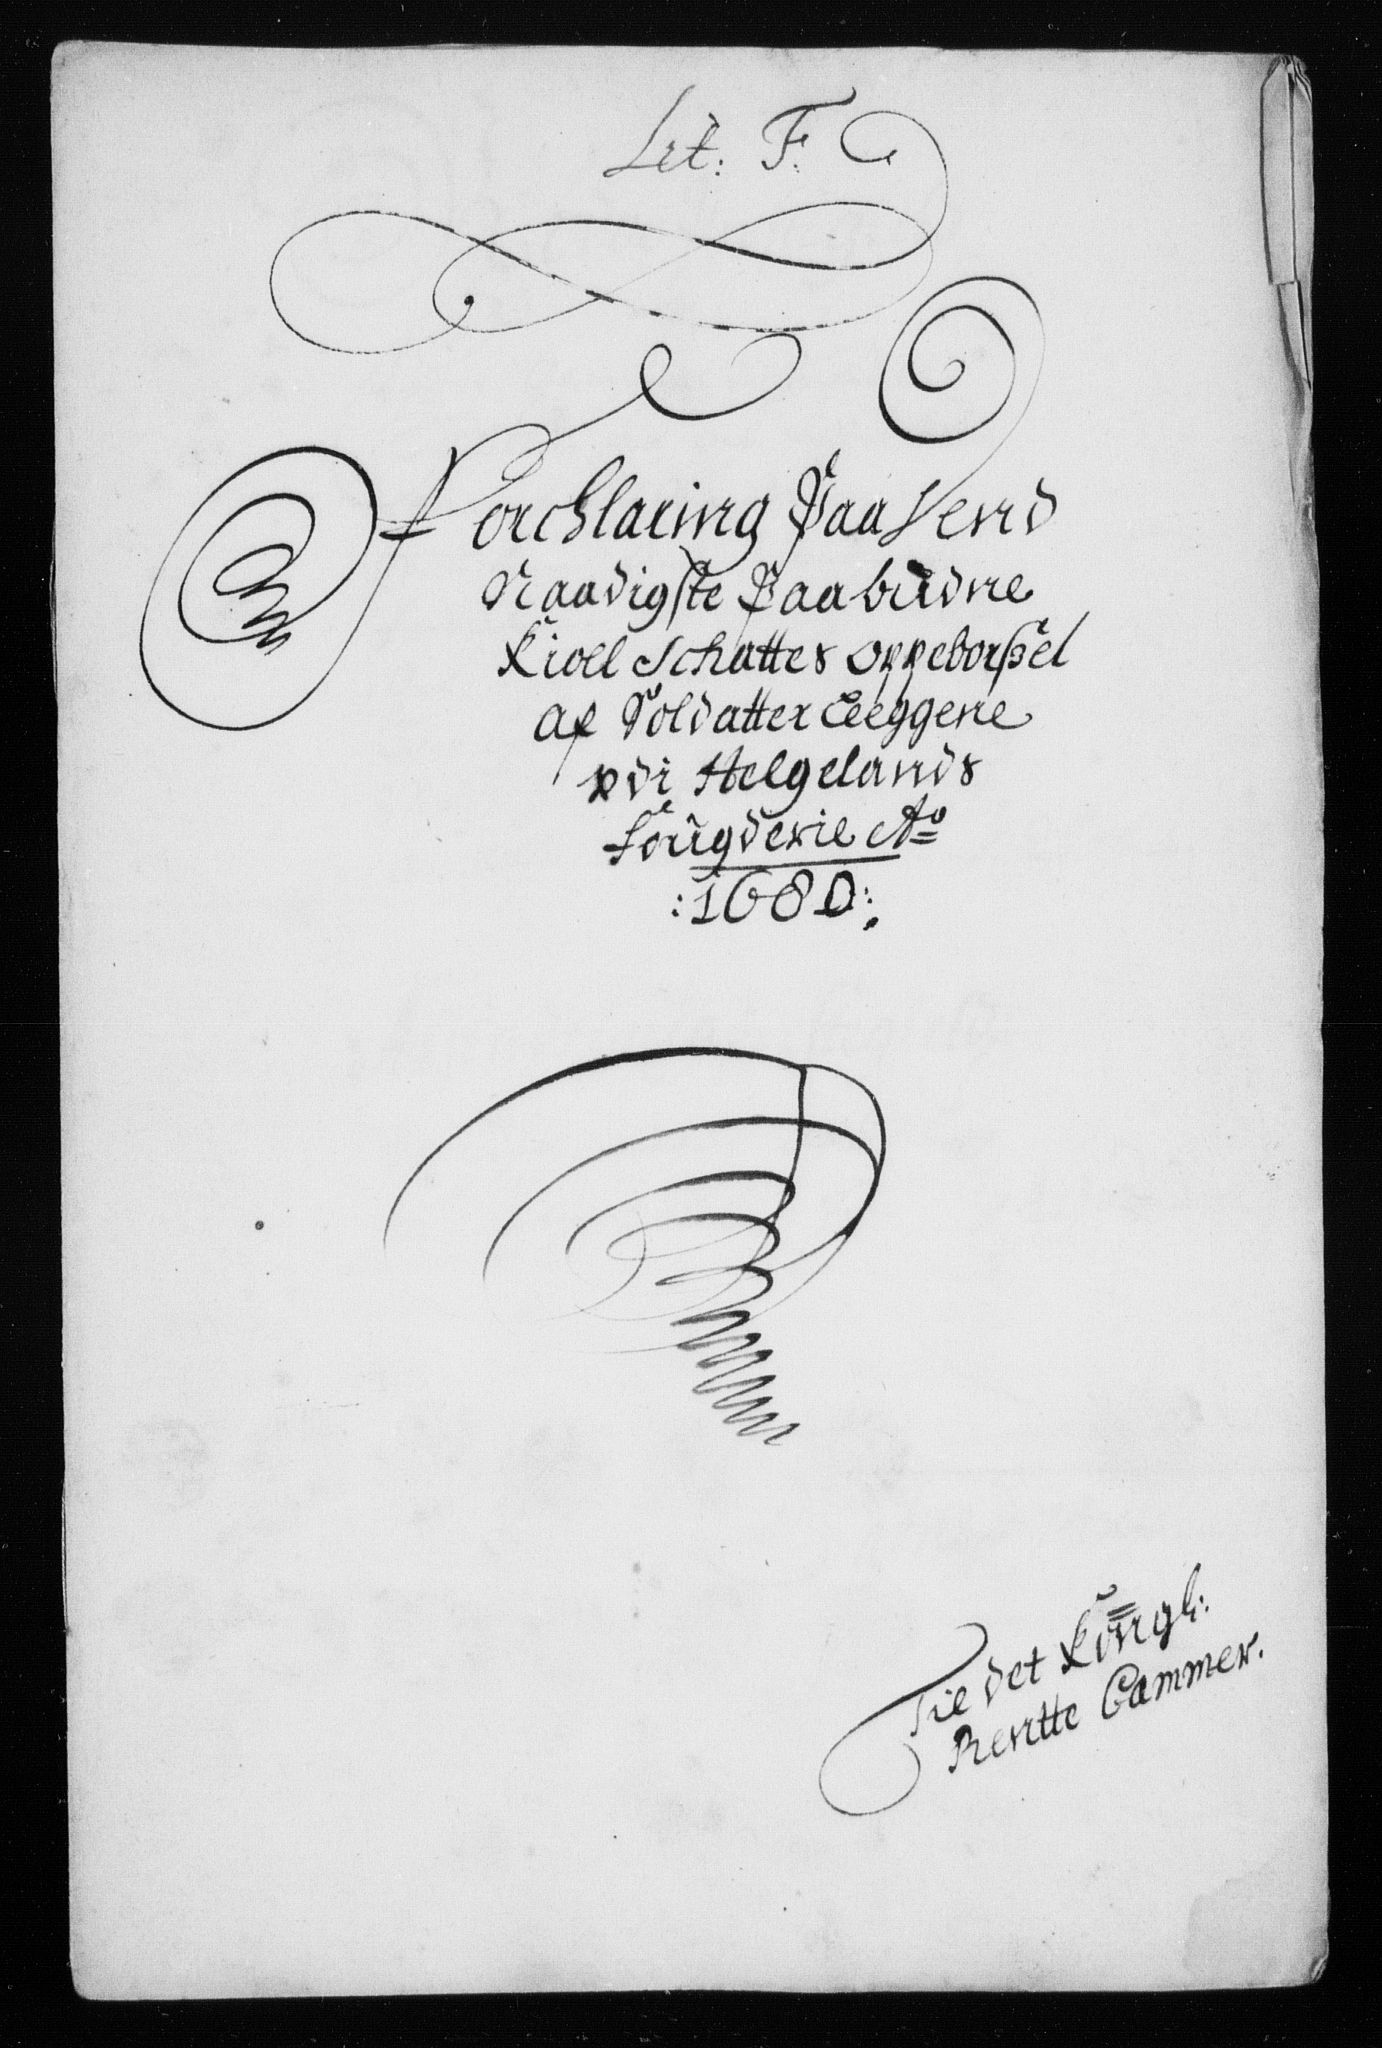 Lit: F.
Forchlaring Paa dend
Naadigste Paabudne
Kioll Schattes oppeborßel
af Soldatter Leeggene
udi Helgelands
Fougderie Ao
:1680:
Til det Kongl:
Rentte Cammer.